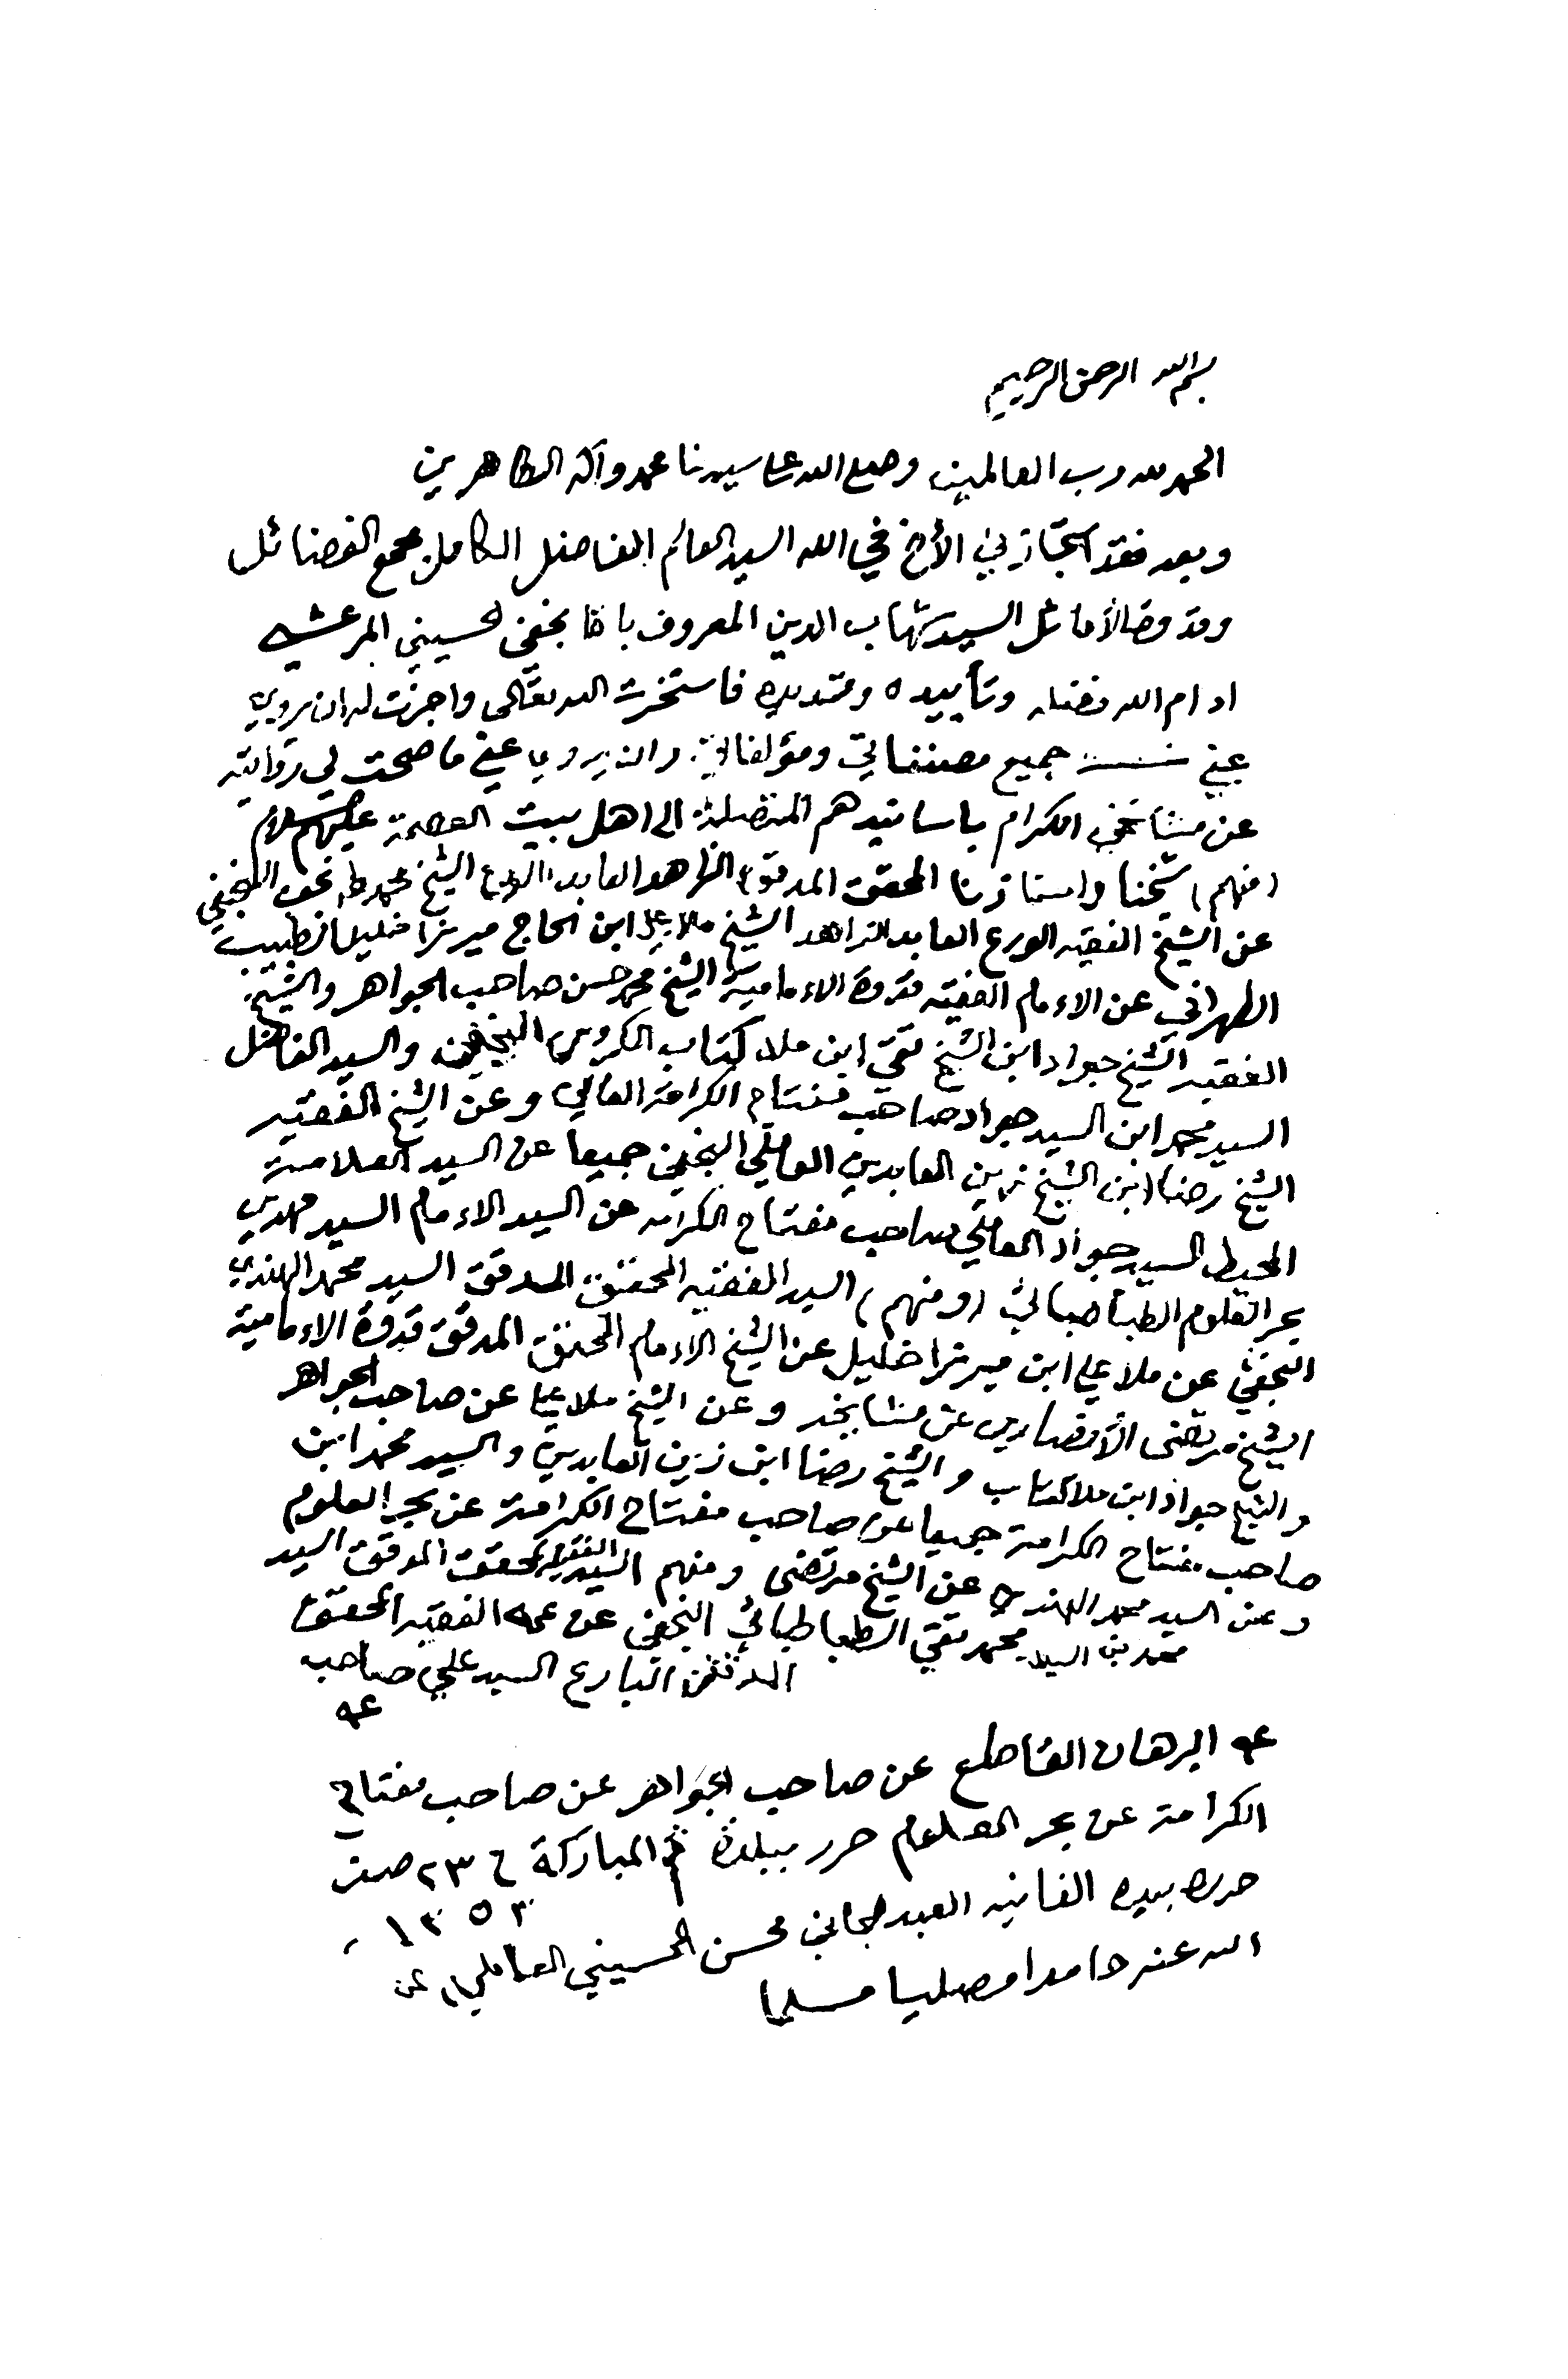 بسم الله الرحمن الرحيم
الحمد لله رب العالمين وصلى الله على سيدنا محمد وآله الطاهرين
وبعد فقد استجازني الأخ في الله السيد العالم الفاضل الكامل مجمع الفضائل
وقدوة الأماثل السيد شهاب الدين المعروف باقا نجفي الحسيني المرعشي
ادام الله فضله وتأييده وتسديده فاستخرت الله تعالى واجزت له ان يروي
عني جميع مصنفاتي ومؤلفاتي وان يروي عني ما صحت لي روايته
عن مشائخي الكرام باسانيدهم المتصلة الى اهل بيت العصمة عليهم السلام
(منهم) شيخنا واستاذنا المحقق المدقق الزاهد العابد الورع الشيخ محمد طه نجف النجفي
عن الشيخ الفقيه الورع العابد الزاهد الشيخ ملا علي ابن الحاج ميرزا خليل الطبيب
الطهراني عن الامام الفقيه قدوة الامامية الشيخ محمد حسن صاحب الجواهر والشيخ
الفقيه الشيخ جواد ابن الشيخ تقي ابن ملا كتاب الكروس النجفي والسيد الفاضل
السيد محمد ابن السيد جواد صاحب مفتاح الكرامة العاملي وعن الشيخ الفقيه
الشيخ رضا ابن الشيخ زين العابدين العاملي النجفي جميعا عن السيد العلامة
المحيط السيد جواد العاملي صاحب مفتاح الكرامه عن السيد الامام السيد مهدي
بحر العلوم الطباطبائي (ومنهم) السيد الفقيه المحقق المدقق السيد محمد الهندي
النجفي عن ملا علي ابن ميرزا خليل عن الشيخ الامام المحقق المدقق قدوة الامامية
الشيخ مرتضى الأنصاري عن مشايخه وعن الشيخ ملا علي عن صاحب الجواهر
والشيخ جواد ابن ملا كتاب والشيخ رضا ابن زين العابدين والسيد محمد ابن
صاحب مفتاح الكرامة جميعا عن صاحب مفتاح الكرامة عن بحر العلوم
وعن السيد محمد الهندي عن الشيخ مرتضى ومنهم السيد الفقيه المحقق المدقق السيد
محمد بن السيد محمد تقي الطباطبائي النجفي عن عمه الفقيه المحقق
المدقق البارع السيد علي صاحب
عه
عه البرهان القاطع عن صاحب الجواهر عن صاحب مفتاح
الكرامة عن بحر العلوم حرر ببلدة قم المباركة ٢٣ صفر
١٣٥٣
حرره بيده الفانيه العبد الجاني محسن الحسيني العاملي عفى
الله عنه حامدا مصليا مسلما